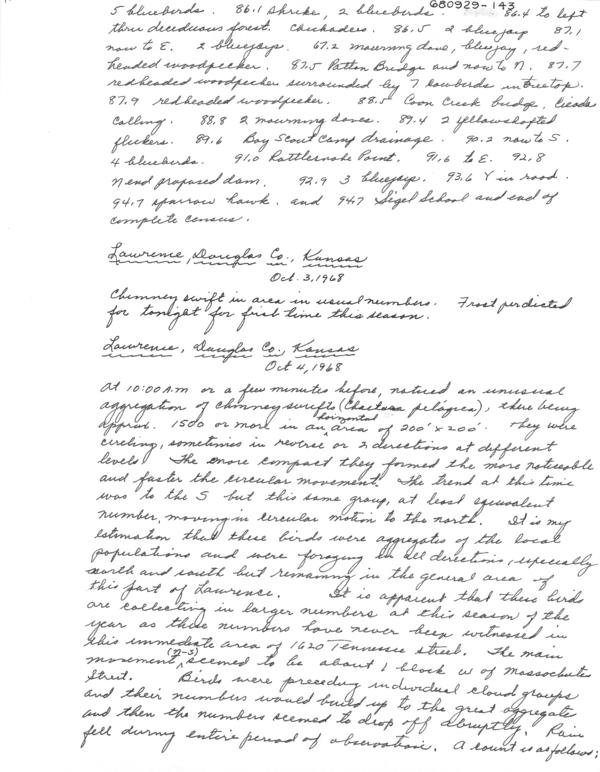 680929-143
5 bluebirds. 86.1 shrike, 2 bluebirds. 86.4 to left
thru deciduous forest. Chickadees. 86.5 2 bluejays 87.1
now to E. 2 bluejays. 67.2 mourning dove, bluejay, red-
headed woodpecker. 87.5 Patton Bridge and now to N. 87.7
redheaded woodpecker surrounded by 7 cowbirds in treetop.
87.9 redheaded woodpecker. 88.5 Coon Creek bridge, Cicada
calling. 88.8 2 mourning doves. 89.4 2 yellowshafted
flickers. 89.6 Boy Scout Camp drainage. 90.2 now to S.
4 bluebirds. 91.0 Rattlesnake Point. 91.6 to E. 92.8
N end proposed dam. 92.9 3 bluejays. 93.6 Y in road.
94.7 sparrow hawk. and 947 Sigel School and end of
complete census.
Lawrence, Douglas Co., Kansas
Oct. 3, 1968
Chimney swift in area in usual numbers. Frost perdicted
for tonight for first time this season.
Lawrence, Douglas Co., Kansas
Oct 4, 1968
At 10:00 A.M or a few minutes before, noticed an unusual
aggregation of chimney swifts (Chaetura pelagica), there being
approx. 1500 or more in an horizontal area of 200' x 200'. They were
circling, sometimes in reverse or 2 directions at different
levels. The more compact they formed the more noticeable
and faster the circular movement. The trend at this time
was to the S but this same group, at least equivalent
number, moving in circular motion to the north. It is my
estimation that these birds were aggregates of the local
populations and were foraging in all directions, especially
north and south but remaining in the general area of
this part of Lawrence. It is apparent that these birds
are collecting in larger numbers at this season of the
year as these numbers have never been witnessed in
this immediate area of 1620 Tennessee street. The main
movement (N-S) seemed to be about 1 block W of Massachusetts
Street. Birds were preceding individual cloud groups
and their numbers would build up to the great aggregate
and then the numbers seemed to drop off abruptly. Rain
fell during entire period of observation. A count is as follows: